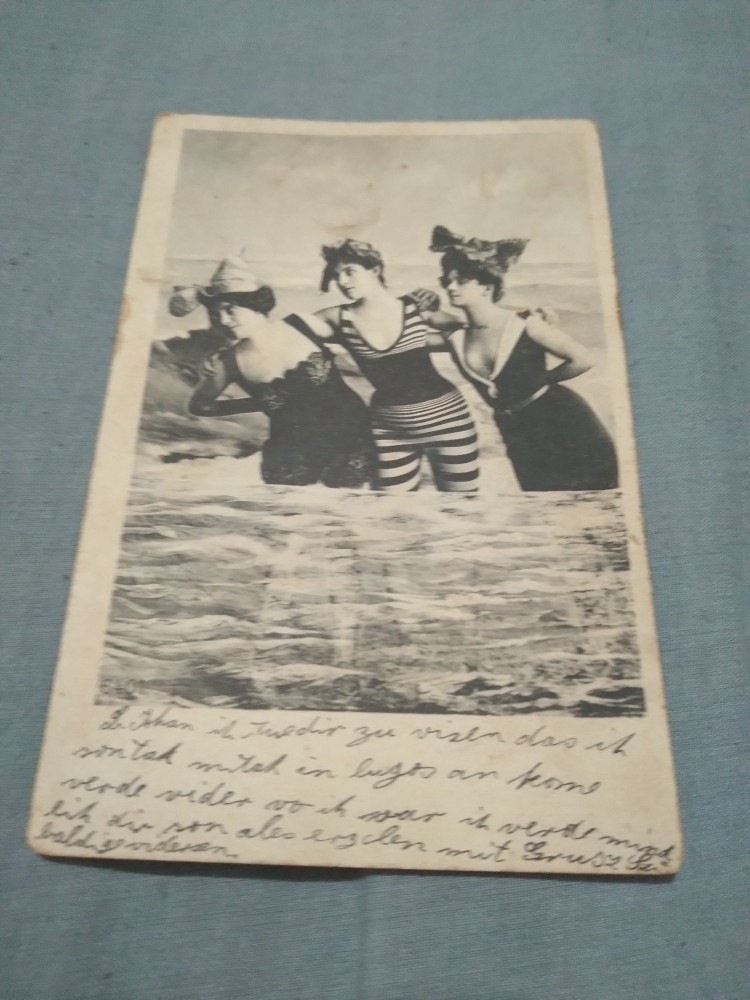 L. Johan ich tue dir zu visen das ich
sontak mitak in lugos an kome
verde vider vo ich war ich verde mind
lich dir son ales erzelen mit Gruse
baldige vidersen.